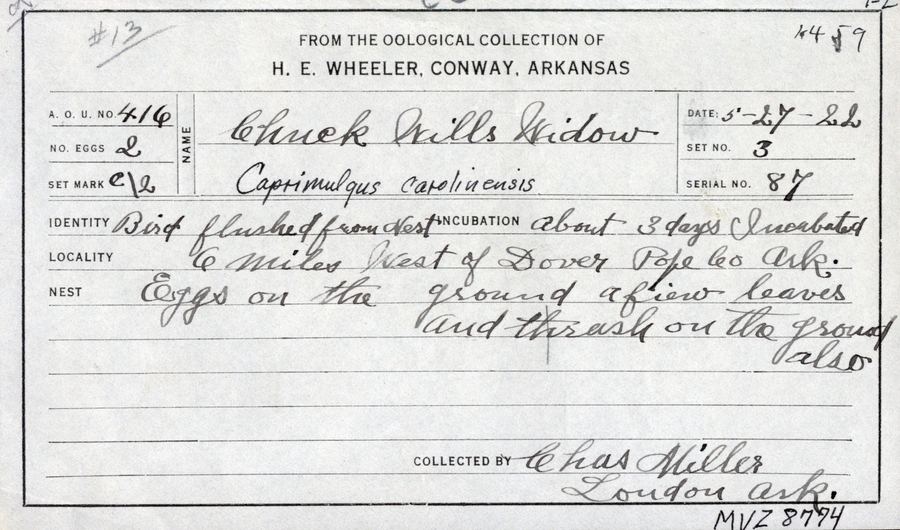 #13
FROM THE OOLOGICAL COLLECTION OF
H. E. WHEELER, CONWAY, ARKANSAS
A. O. U. NO. 416
NO. EGGS 2
SET MARK c\2
NAME
Chuck Wills Widow
Caprimulgus carolinensis
DATE: 5-27-22
SET NO. 3
SERIAL NO. 87
IDENTITY Bird flushed from Nest INCUBATION about 3 days Incubated
LOCALITY 6 miles West of Dover Pope Co Ark.
NEST Eggs on the ground a fiew leaves
and thrash on the ground
also
COLLECTED BY Chas Miller
London Ark.
MVZ 8774